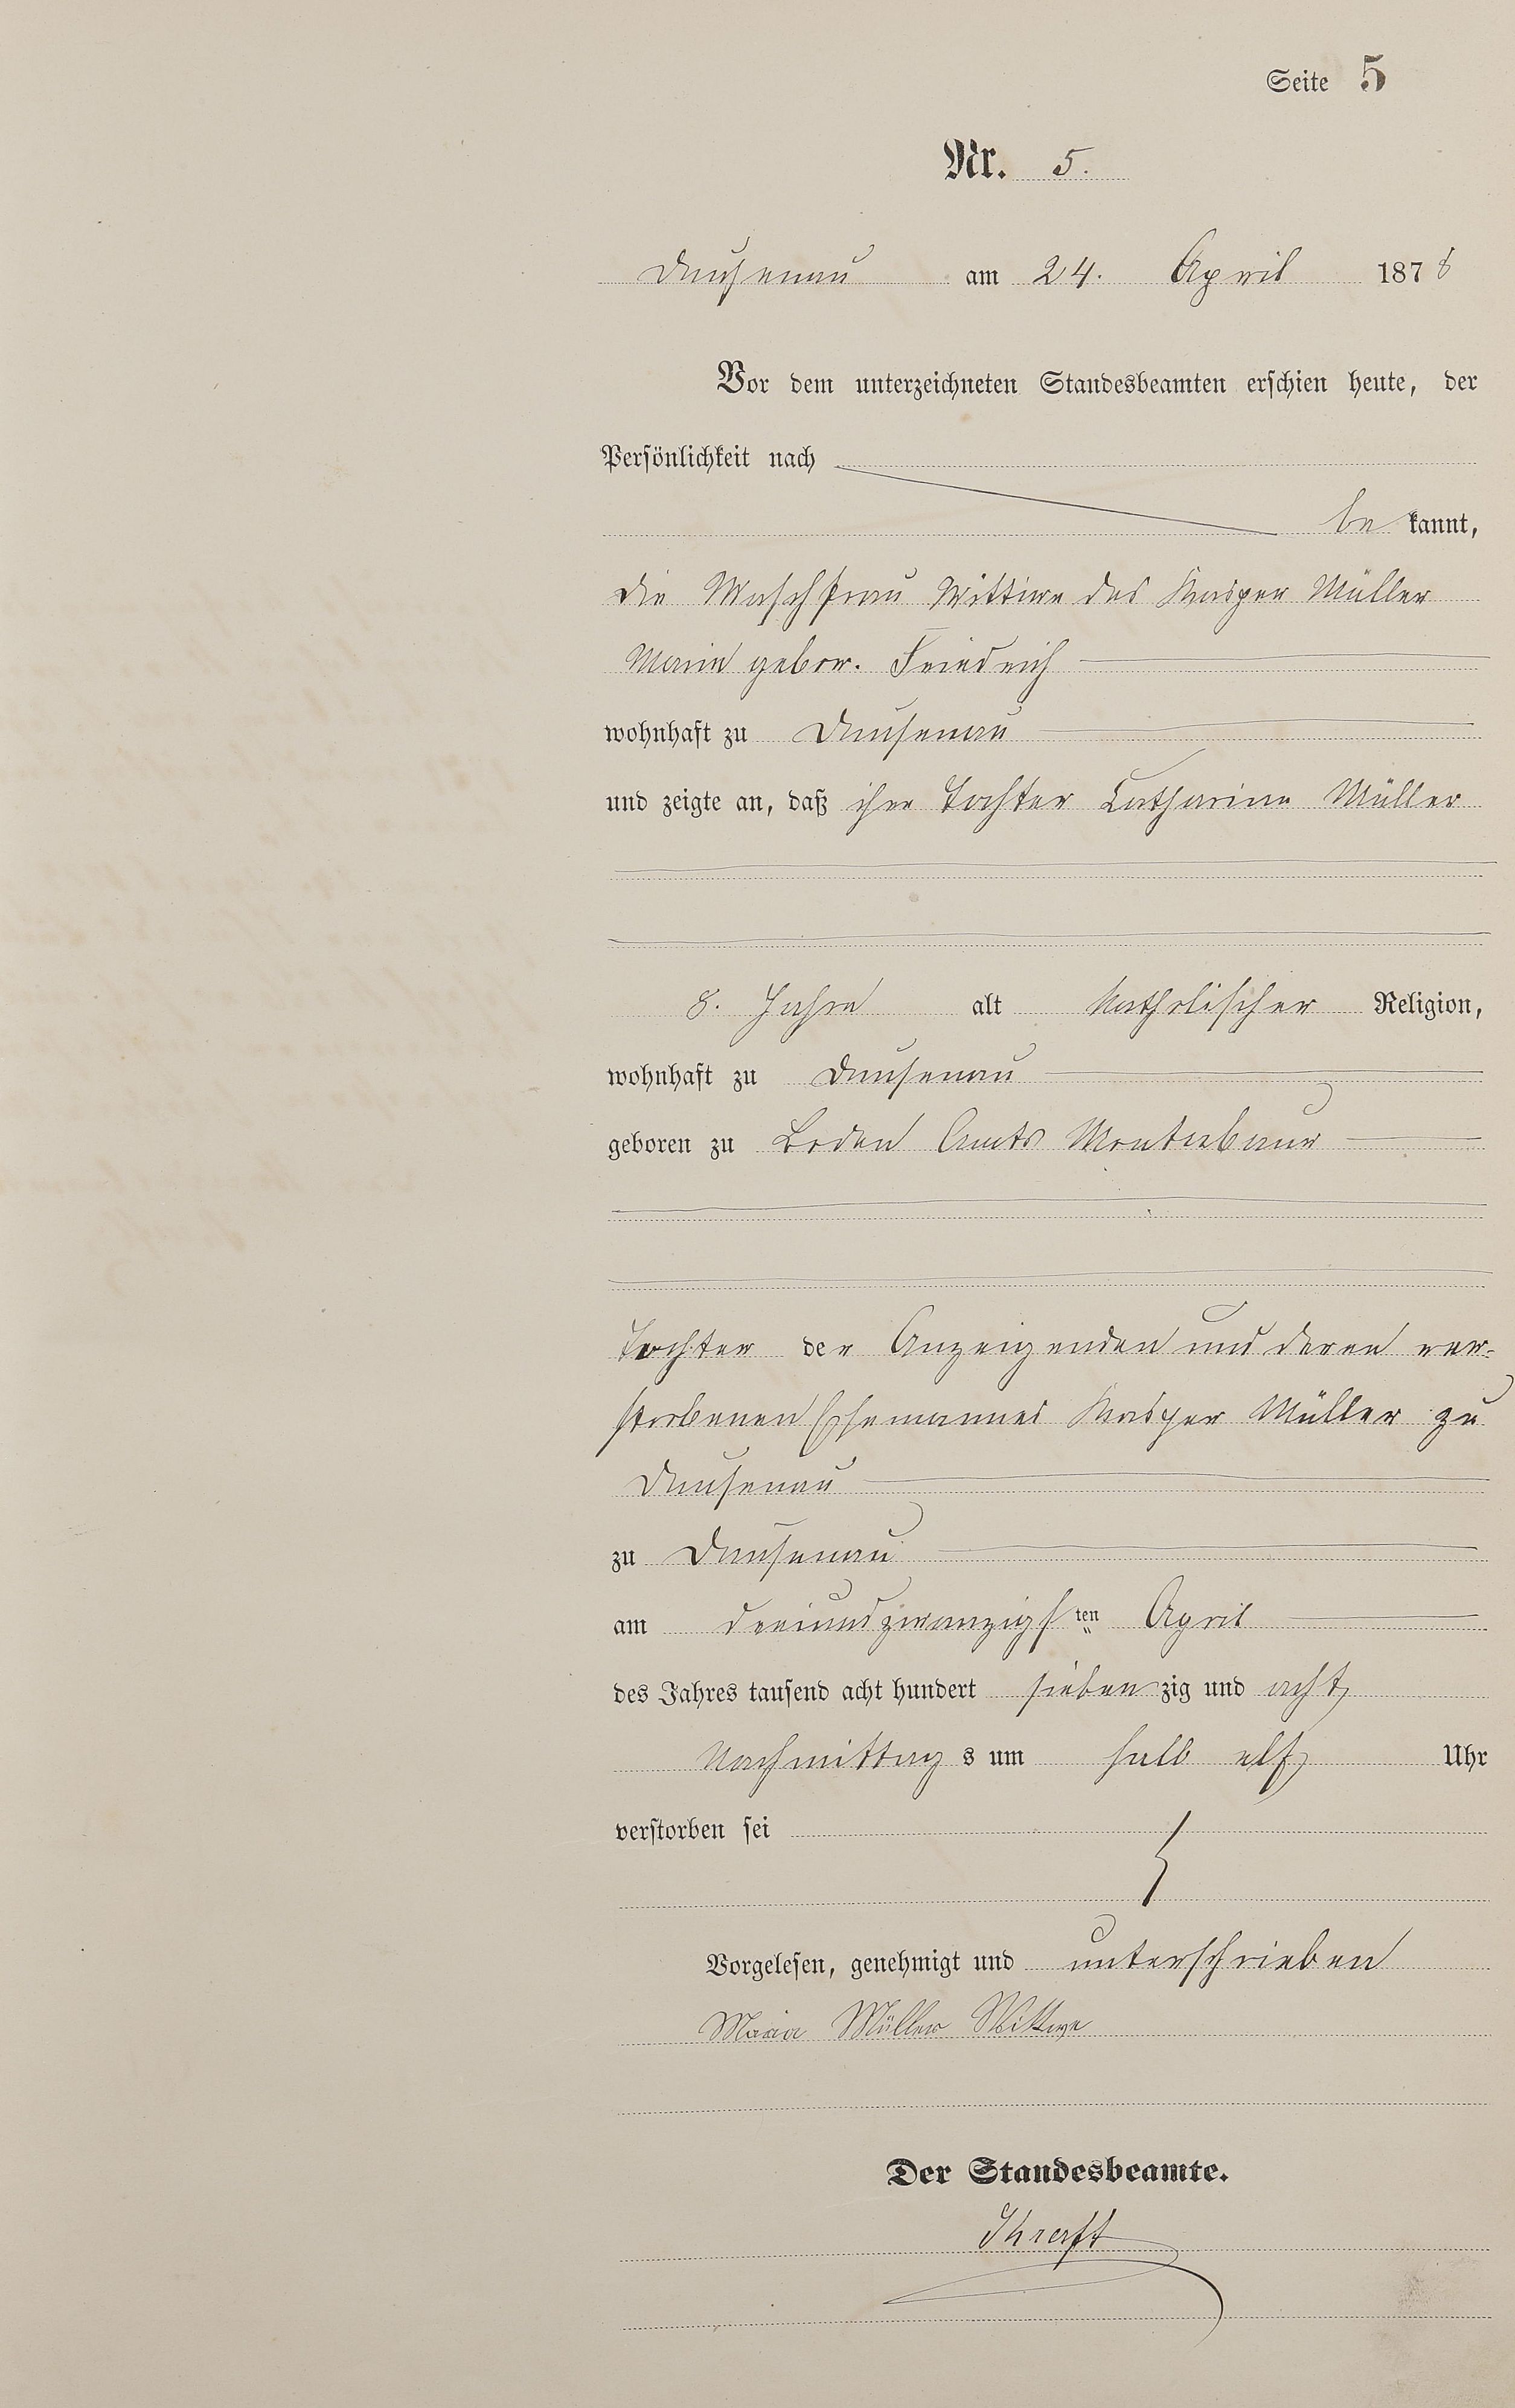 Seite 5
Nr. 5.
Dausenau am 24. April 1878
Vor dem unterzeichneten Standesbeamten erschien heute, der
Persönlichkeit nach
be kannt,
die Waschfrau Wittwe des Kasper Müller
Marie gebor. Friedrich
wohnhaft zu Dausenau
und zeigte an, daß ihre Tochter Catharina Müller
8. Jahre alt katholischer Religion,
wohnhaft zu Dausenau
geboren zu Boden Amts Montabaur
Tochter der Anzeigenden und deren ver-
storbenen Ehemannes Kasper Müller zu
Dausenau
zu Dausenau
am dreiundzwanzigsten April
des Jahres tausend acht hundert siebenzig und acht
Nachmittags um halb elf Uhr
verstorben sei
Vorgelesen, genehmigt und unterschrieben
Maria Müller Wittwe
Der Standesbeamte.